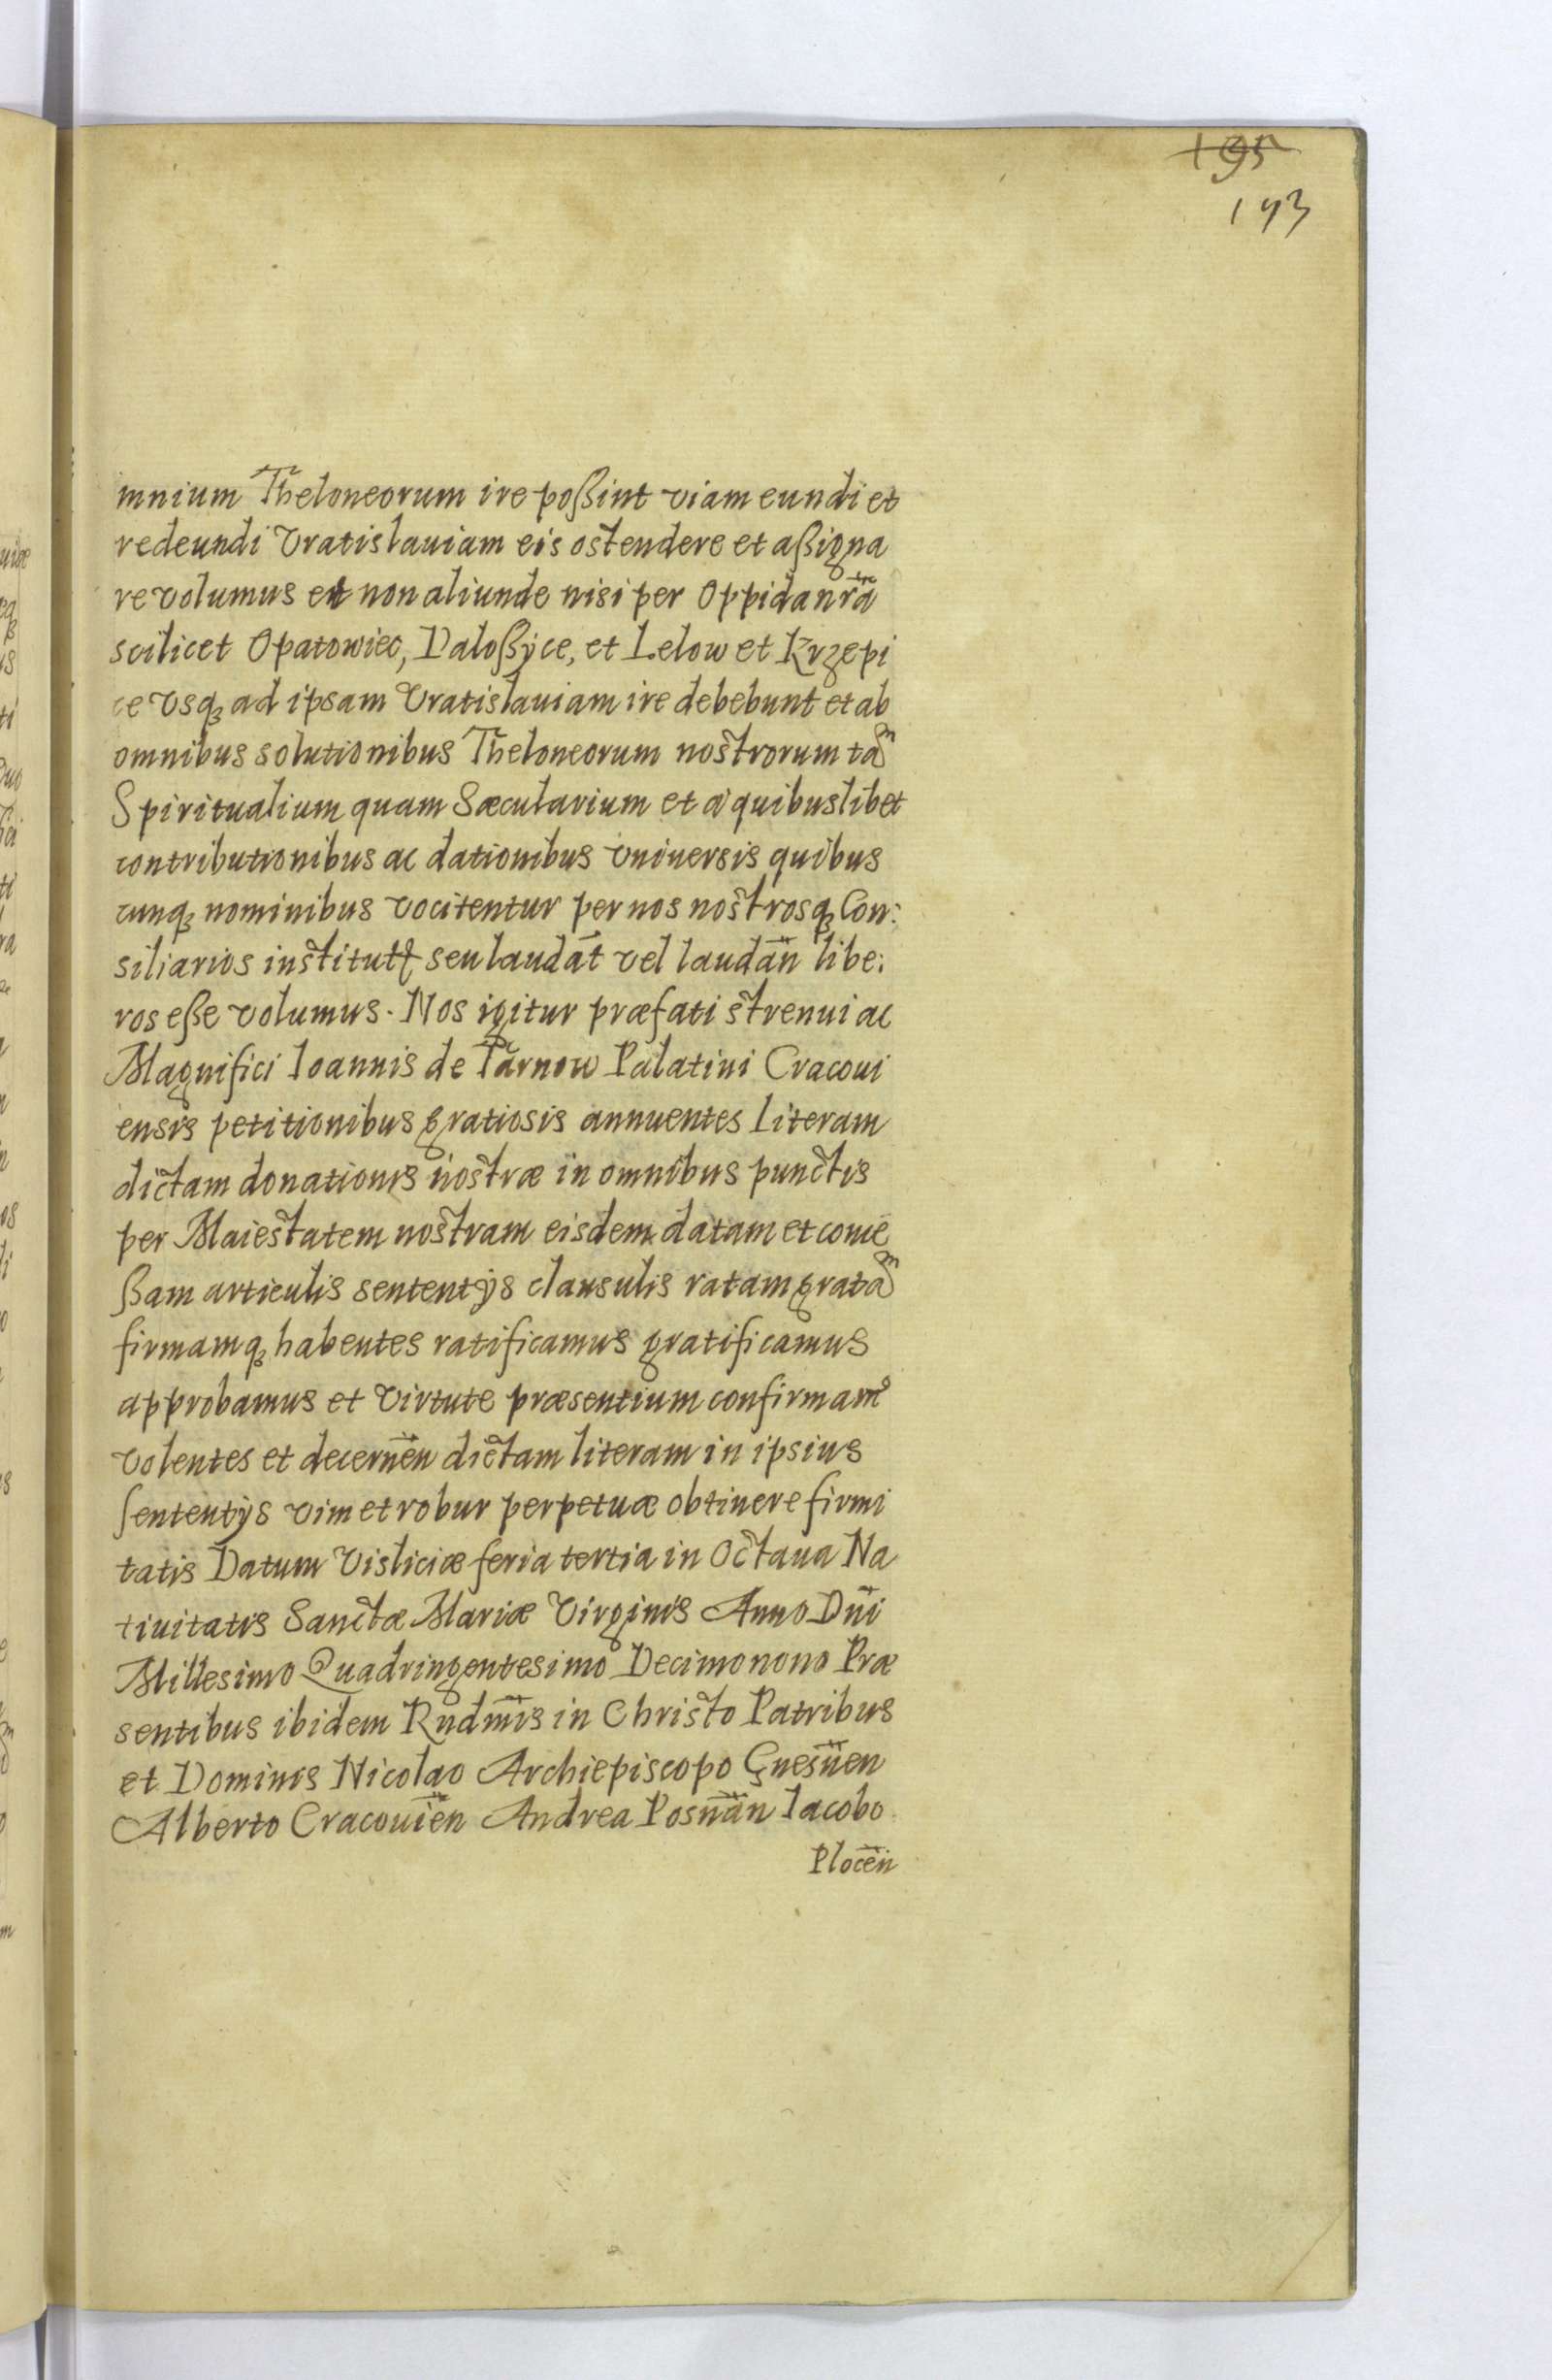 195
193
mnium Theloneorum ire poßint viam eundi et
redeundi Vratislauiam eis ostendere et aßigna
re volumus et non aliunde nisi per Oppida nr̄ā
scilicet Opatowiec, Daloßÿce, et Lelow et Krzepi
ce vsq ad ipsam Vratislauiam ire debebunt et ab
omnibus solutionibus Theloneorum nostrorum tam
Spiritualium quam Sæcularium et a quibuslibet
contributionibus ac dationibus vniuersis quibus
cunq nominibus vocitentur per nos nostrosq Con:
siliarios institut seu laudāt vel laudān̄ libe:
ros eße volumus. Nos igitur præfati strenui ac
Magnifici Ioannis de Tarnow Palatini Cracoui
ensis petitionibus gratiosis annuentes literam
dictam donationis nostræ in omnibus punctis
per Maiestatem nostram eisdem datam et conce
ßam articulis sententÿs clausulis ratam gratam
firmamq habentes ratificamus gratificamus
approbamus et virtute præsentium confirmamꝰ
volentes et decernēn dictam literam in ipsius
sententÿs vim et robur perpetuæ obtinere firmi
tatis Datum Visliciæ feria tertia in Octaua Na
tiuitatis Sanctæ Mariæ Virginis Anno Dn̄i
Millesimo Quadringentesimo Decimonono Præ
sentibus ibidem Rndm̄is in Christo Patribus
et Dominis Nicolao Archiepiscopo Gnesn̄en
Alberto Cracouiēn Andrea Posn̄ān Iacobo
Plocēn